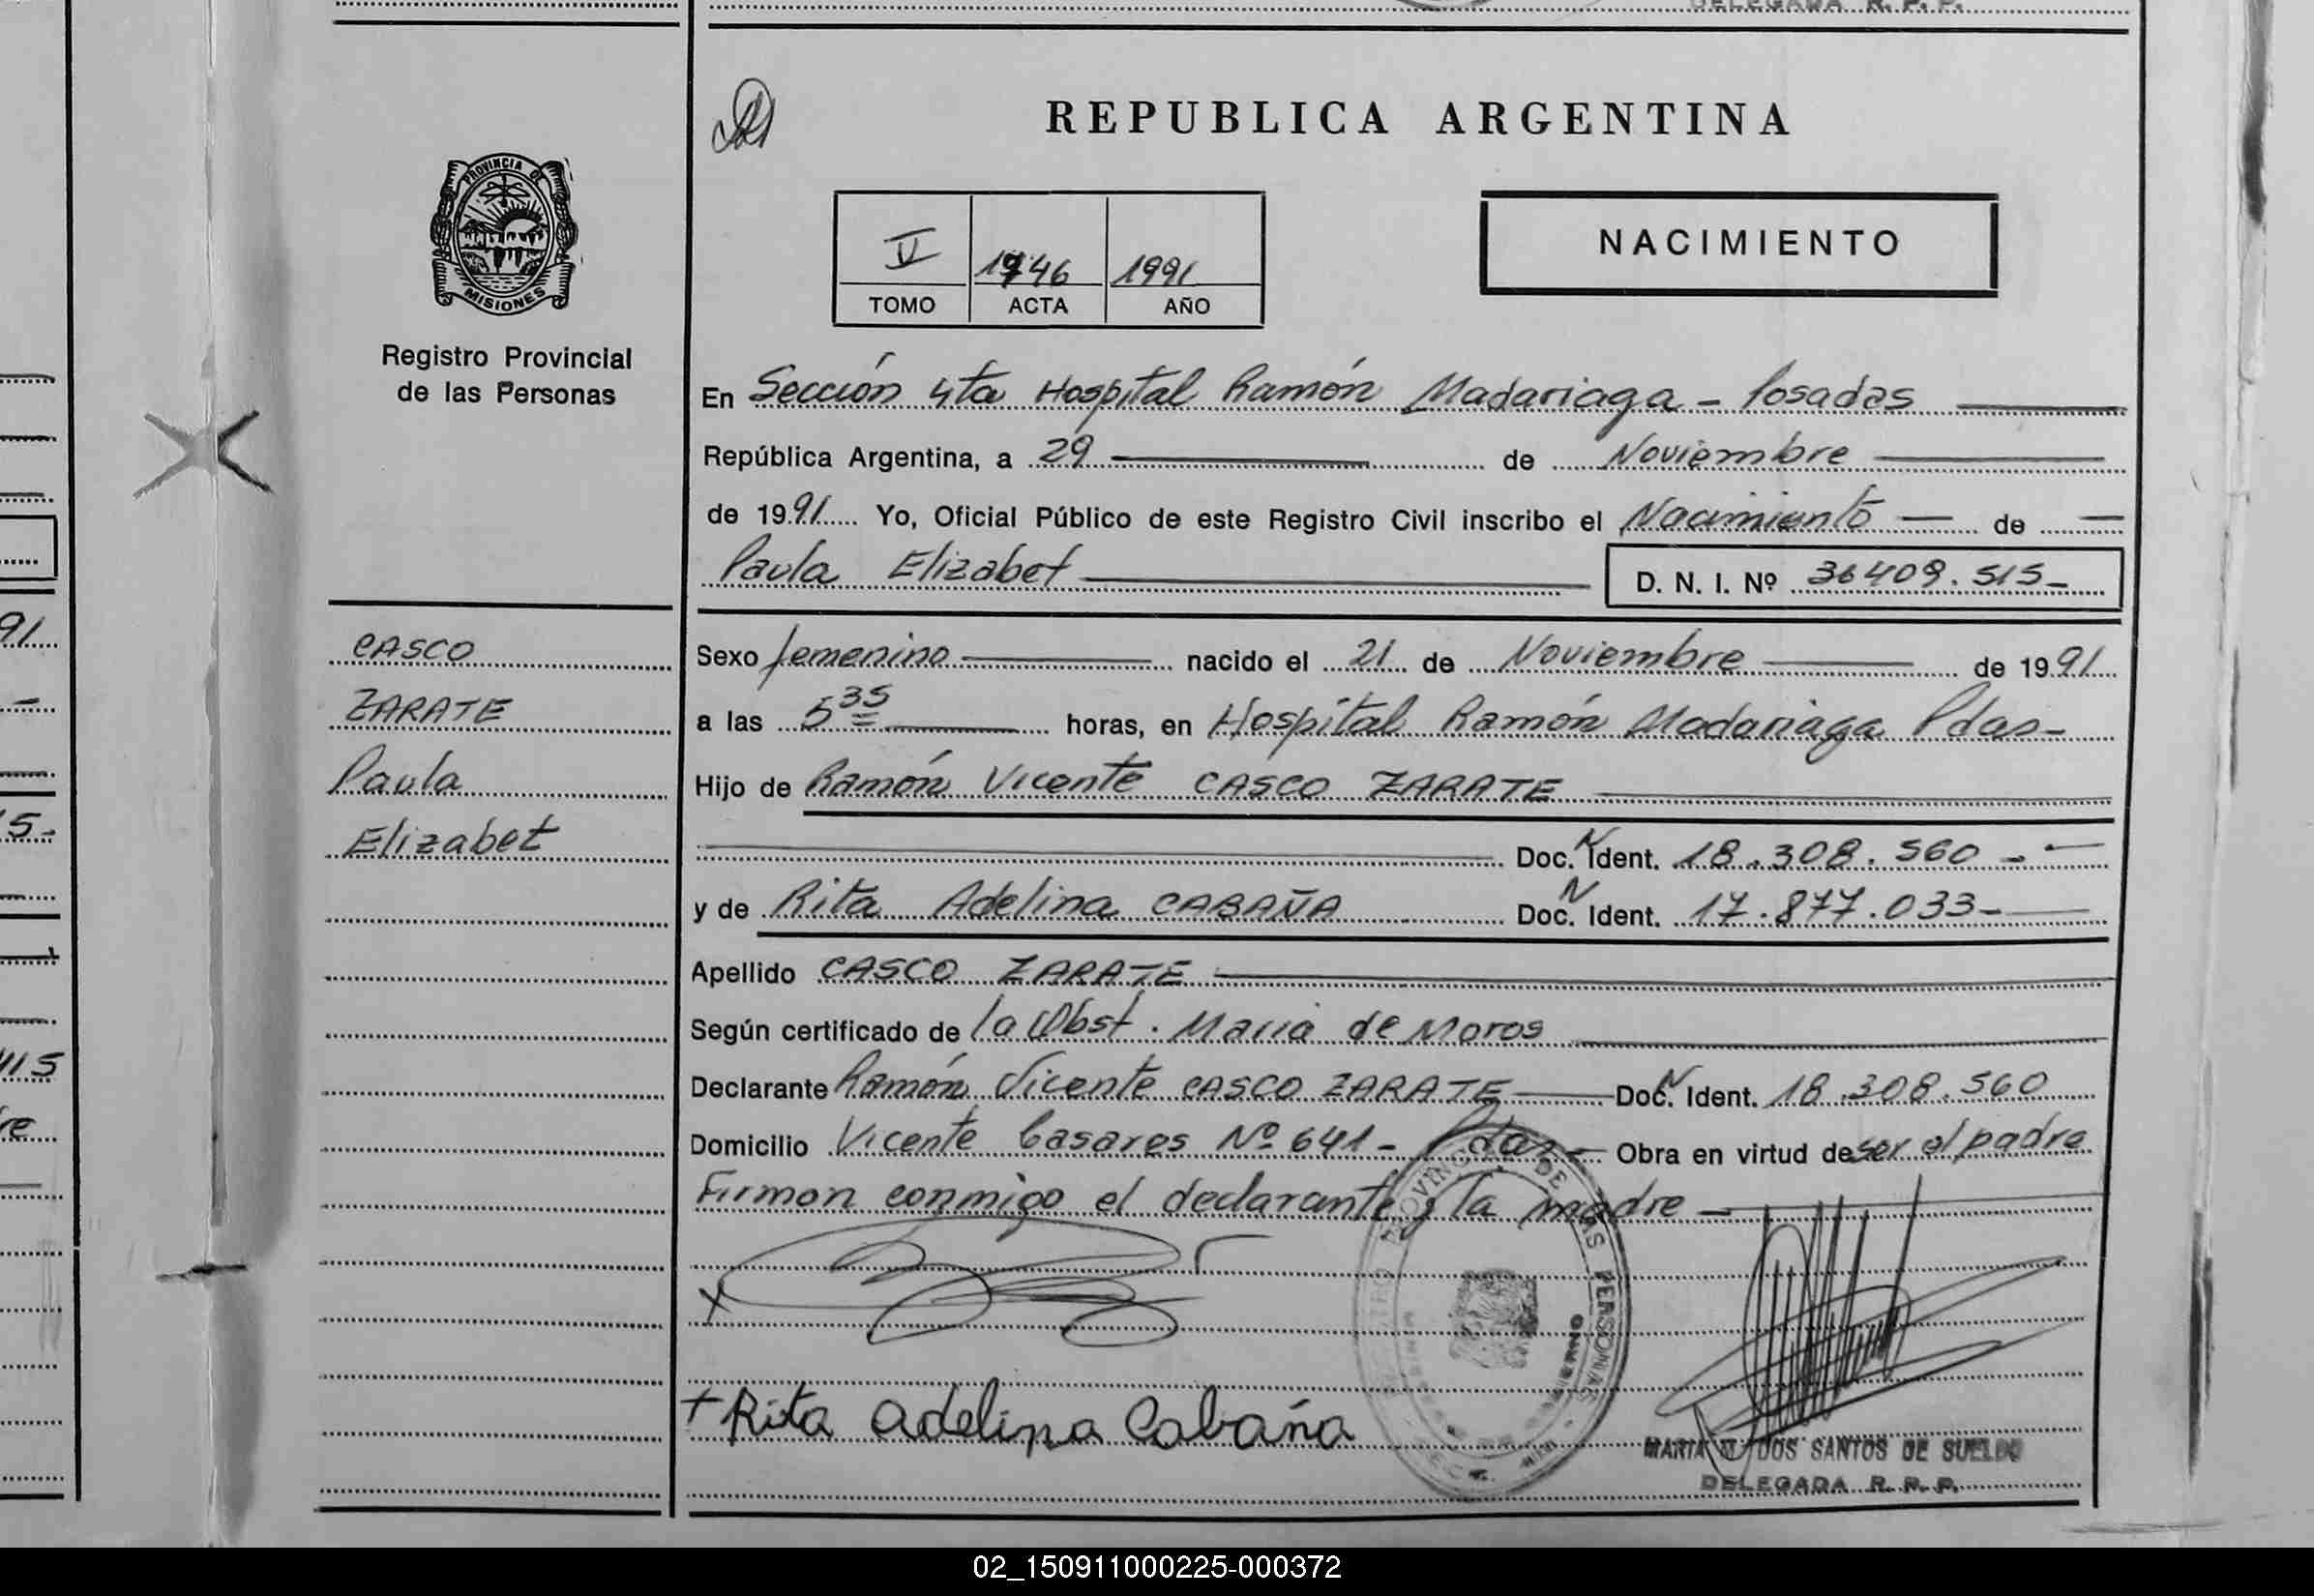 DELEGADA R. P. P.
REPUBLICA ARGENTINA
PROVINCIA DE
MISIONES
Registro Provincial
de las Personas
V 1746 1991
TOMO ACTA AÑO
NACIMIENTO
En Sección 4ta Hospital Ramón Madariaga - Posadas
República Argentina, a 29 de Noviembre
de 1991 Yo, Oficial Público de este Registro Civil inscribo el Nacimiento de
Paula Elizabet D. N. I. Nº 36409.515-
CASCO
ZARATE
Paula
Elizabet
Sexo femenino nacido el 21 de Noviembre de 1991
a las 5 35 horas, en Hospital Ramón Madariaga Pdas-
Hijo de Ramón Vicente CASCO ZARATE
Doc. N Ident. 18.308.560 -
y de Rita Adelina CABAÑA Doc. N Ident. 17.877.033-
Apellido CASCO ZARATE
Según certificado de la Obst. Maria de Moros
Declarante Ramón Vicente CASCO ZARATE Doc. N Ident. 18.308.560
Domicilio Vicente Casares Nº 641 - Pdas - Obra en virtud de ser el padre
Firman conmigo el declarante y la madre
+ Rita Adelina Cabaña
PROVINCIAL DE LAS PERSONAS
MARIA DOS SANTOS DE SUELDO
DELEGADA R. P. P.
02_150911000225-000372